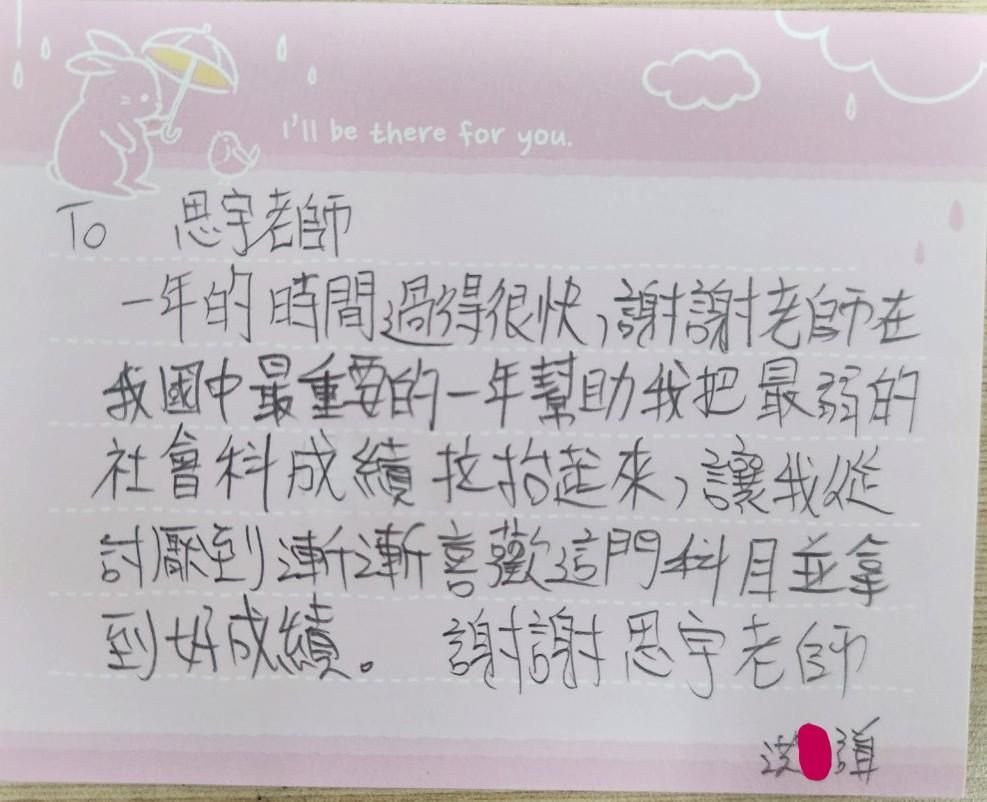 I'll be there for you.
To 思宇老師
一年的時間過得很快，謝謝老師在
我國中最重要的一年幫助我把最弱的
社會科成績拉抬起來，讓我從
討厭到漸漸喜歡這門科目並拿
到好成績。 謝謝思宇老師
洪